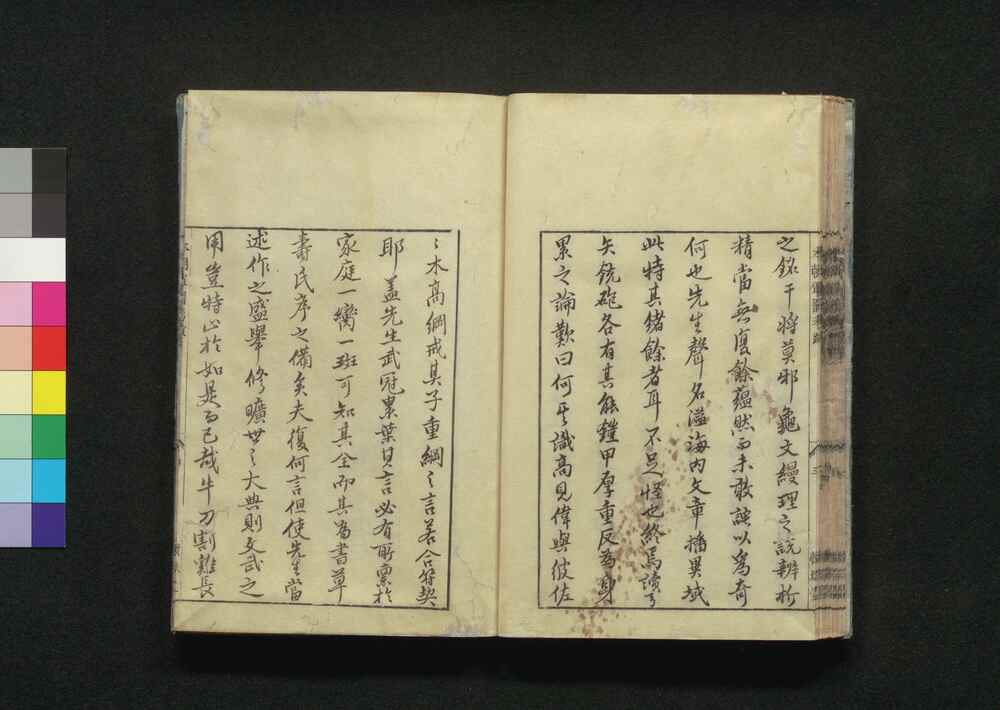 之銘干將莫邪龜文縵理之說辨析
精當無復餘蘊然而未敢誤以為奇
何也先生聲名溢海內文章播異域
此特其緒餘者耳不足怪也終焉讀了
矢銃砲各有其能鎧甲厚重反為身
累之論歎曰何其識高見偉與彼佐
〻木高綱戒其子重綱之言若合符契
耶蓋先生武冠累葉其言必有所稟於
家庭一臠一斑可知其全而其為書草
壽民序之備矣夫復何言但使先生當
述作之盛舉修曠世之大典則文武之
用豈特止於如是而已哉牛刀割雞長